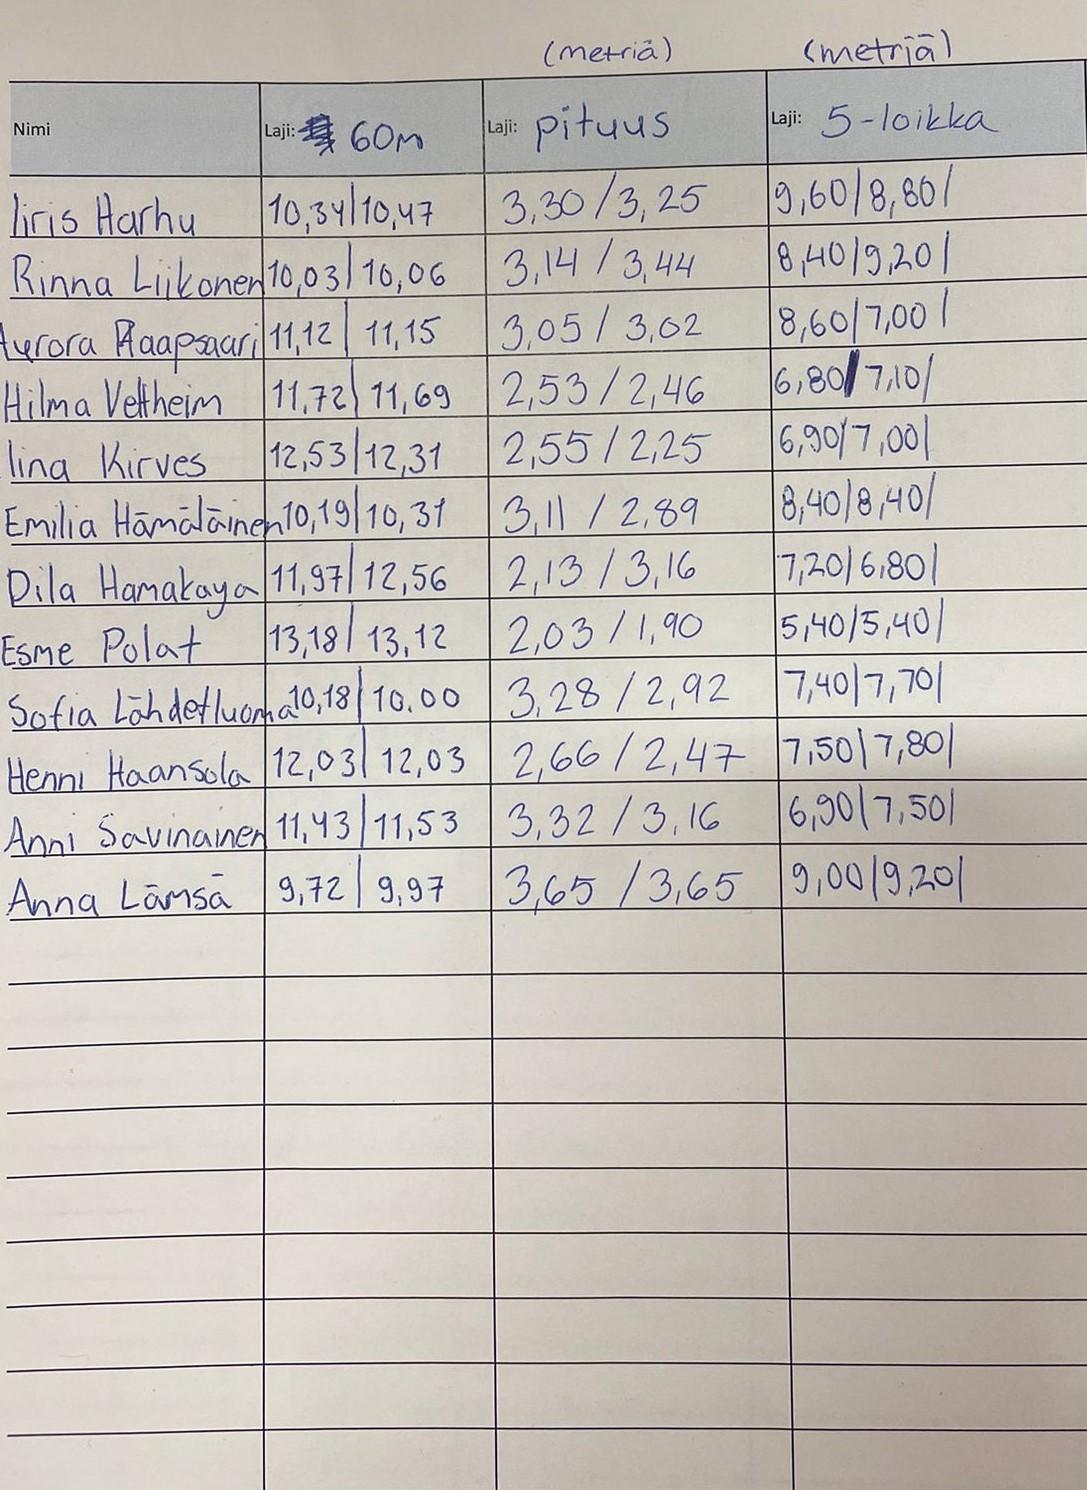 (metriä) (metriä)
Nimi Laji: 60m Laji: pituus Laji: 5-loikka
Iiris Harhu 10,34|10,47 3,30/3,25 9,60/8,80/
Rinna Liikonen 10,03|10,06 3,14/3,44 8,40/9,20/
Aurora Haapsaari 11,12|11,15 3,05/3,02 8,60/7,00/
Hilma Veltheim 11,72|11,69 2,53/2,46 6,80/7,10/
Iina Kirves 12,53|12,31 2,55/2,25 6,90/7,00|
Emilia Hämäläinen 10,19|10,31 3,11/2,89 8,40|8,40/
Dila Hamakaya 11,97|12,56 2,13/3,16 7,20/6,80|
Esme Polat 13,18/13,12 2,03/1,90 5,40/5,40/
Sofia Lähdetluoma 10,18|10.00 3,28/2,92 7,40|7,70|
Henni Haansola 12,03|12,03 2,66/2,47 7,50|7,80|
Anni Savinainen 11,43|11,53 3,32/3,16 6,90|7,50|
Anna Lämsä 9,72|9,97 3,65/3,65 9,00|9,20|